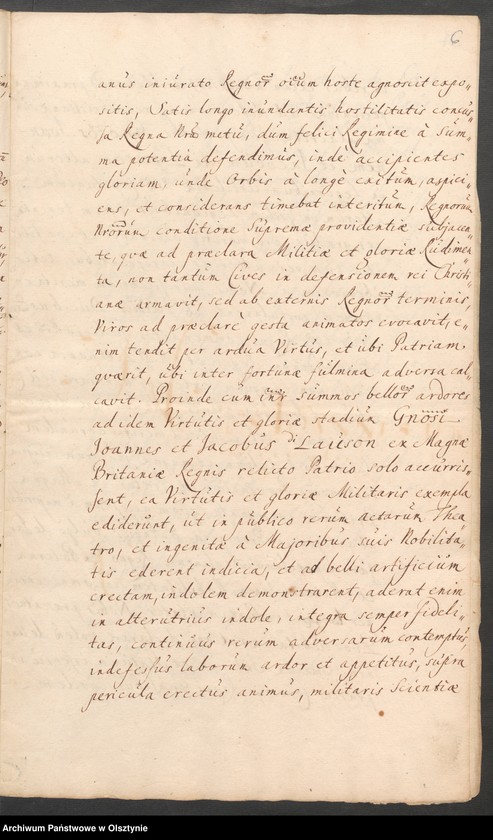 6
anus iniurato Regnor ocum hoste agnoscit expo=
sitis, Satis longo inundantis hostilitatis concus=
sa Regna Nra metu, dum felici Regimine à Sum=
ma potentia defendimus, indè accipientes
gloriam, unde Orbis à longè exitum, aspici=
ens, et considerans timebat interitum, Regnorum
Nrorum conditione Supremæ providentiæ subjacen=
te, quæ ad præclara Militiæ et gloriæ Rudimen=
ta, non tantum Cives in defensionem rei Christi=
anæ armavit, sed ab externis Regnor terminis,
Viros ad præclarè gesta animatos evocavit, e=
nim tendit per ardua Virtus, et ubi Patriam
quærit, ubi inter fortunæ fulmina adversa cal=
cavit. Proinde cum inr summos bellor ardores
ad idem Virtutis et gloriæ stadium Gnosi
Joannes et Jacobus di Lauson ex Magnæ
Britaniæ Regnis relicto Patrio solo accurris=
sent, ea Virtutis et gloriæ Militaris exempla
ediderunt, ut in publico rerum actarum Thea=
tro, et ingenitæ à Majoribus suis Nobilita=
tis ederent indicia, et ad belli artificium
erectam, indolem demonstrarent, aderat enim
in alterutrius indole, integra semper fideli=
tas, continuus rerum adversarum contemptus,
indefessus laborum ardor et appetitus, supra
pericula erectus animus, militaris Scientiæ
Archiwum Państwowe w Olsztynie